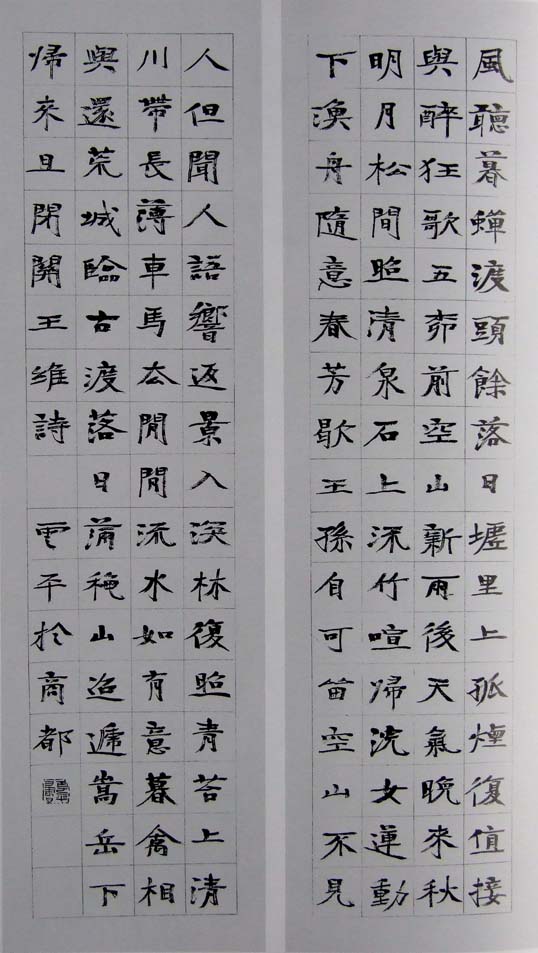 風聽暮蟬渡頭餘落日墟里上孤煙復值接
與醉狂歌五柳前空山新雨後天氣晚來秋
明月松間照清泉石上流竹喧歸浣女蓮動
下漁舟隨意春芳歇王孫自可留空山不見
人但聞人語響返景入深林復照青苔上清
川帶長薄車馬去閒閒流水如有意暮禽相
與還荒城臨古渡落日滿秋山迢遞嵩岳下
歸來且閉關王維詩 平於商都